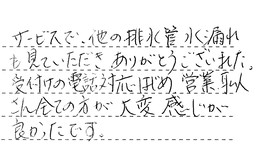 サービスで、他の排水管水漏れ
も見ていただき ありがとうございました。
受付けの電話対応はじめ、営業、職人
さん全ての方が 大変 感じが
良かったです。